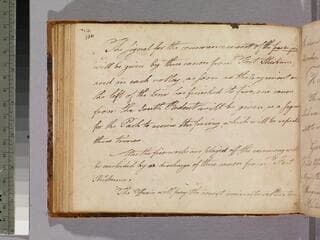 The Signal for the commencement of the
will be given by three cannon from Fort
and in each volley, as soon as the regiment on
the left of the line has finished to fire, one cannon
from the South Redoubt will be given as a
for the Park to the firing, which will be
three times.
After the fireworks are played off the ceremony will
be concluded by a discharge of three cannon from Fort
The Officers will pay the